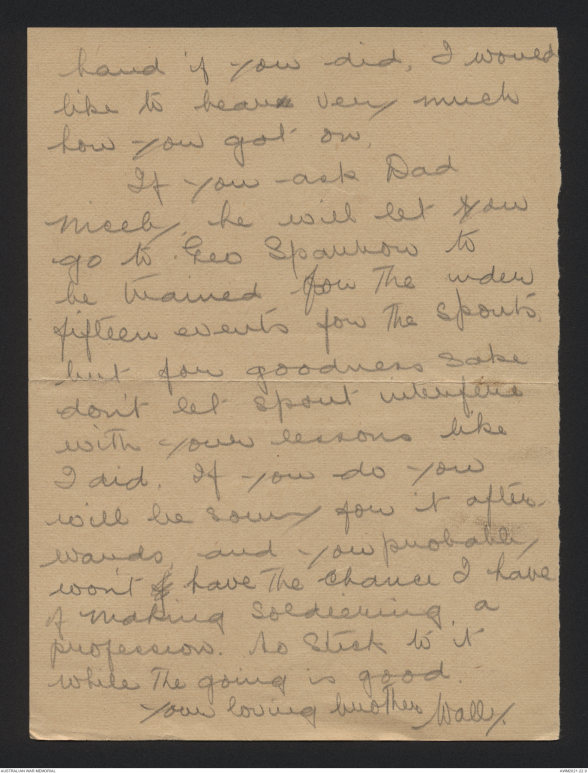 hand if you did, I would
like to hear very much
how you got on.
If you ask Dad
nicely, he will let you
go to Geo Sparrow to
be trained for the under
fifteen events for the sports.
but for goodness sake
don't let sport interfere
with your lessons like
I did. If you do you
will be sorry for it after-
wards, and you probably
won't have the chance I have
of making soldiering a
profession. So stick to it
while the going is good.
Your loving brother Wally.
AUSTRALIAN WAR MEMORIAL